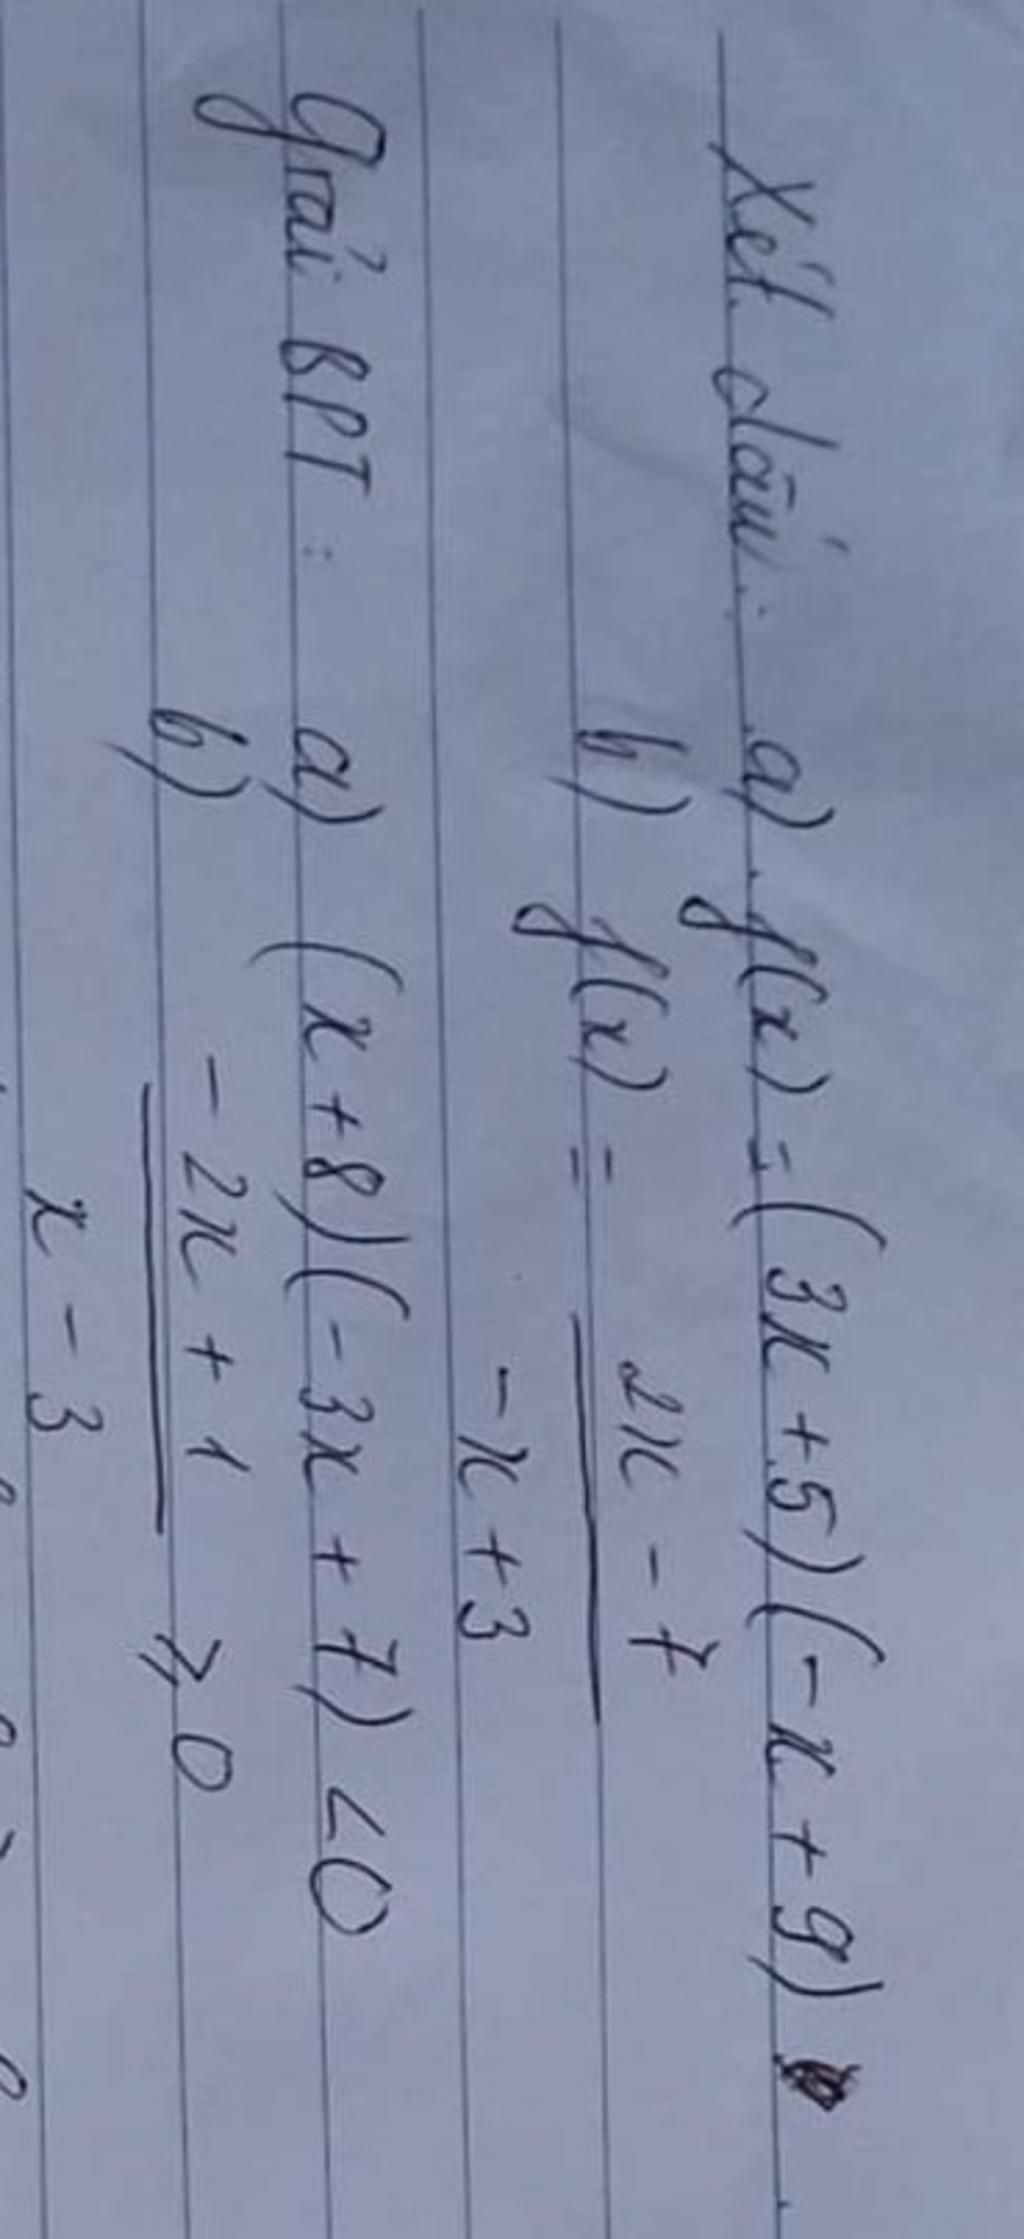 Xét dấu: a) f(x) = (3x + 5)(-x + 9)
b) f(x) = 2x - 7
-x + 3
Giải BPT: a) (x + 8)(-3x + 7) < 0
b) -2x + 1 ⩾ 0
x - 3